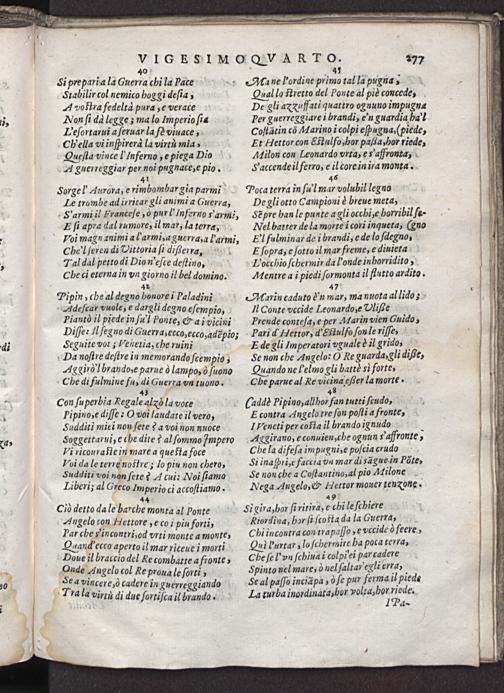 VIGESIMOQVARTO. 277
40
Si prepari a la Guerra chi la Pace
Stabilir col nemico hoggi desia,
A vostra fedeltà pura, e verace
Non si dà legge; ma lo Imperio sia
L'esortarui a seruar la fè viuace,
Ch'ella vi inspirerà la virtù mia,
Questa vince l'Inferno, e piega Dio
A guerreggiar per noi pugnace, e pio.
41
Sorge l'Aurora, e rimbombar gia parmi
Le trombe ad irritar gli animi a Guerra,
S'armi il Francese, ò pur l'Inferno s'armi,
E si apra dal rumore, il mar, la terra,
Voi magnanimi a l'armi, a guerra, a l'armi,
Che'l seren di Vittoria si disserra,
Tal dal petto di Dio n'esce destino,
Che ci eterna in vn giorno il bel domino.
42
Pipin, che al degno honore i Paladini
Adescar vuole, e dargli degno esempio,
Piantò il piede in su'l Ponte, & a i vicini
Disse: Il segno di Guerra, ecco, ecco, adēpio;
Seguite voi; Venetia, che ruini
Da nostre destre in memorando scempio,
Aggirò'l brando, e parue ò lampo, ò suono
Che di fulmine fu, di Guerra vn tuono.
43
Con superbia Regale alzò la voce
Pipino, e disse: O voi laudate il vero,
Sudditi miei non sete? a voi non nuoce
Soggettarui, e che dite? al sommo Impero
Vi ricouraste in mare a questa foce
Voi da le terre nostre; Io piu non chero,
Sudditi voi non sete? A cui? Noi siamo
Liberi; al Greco Imperio ci accostiamo.
44
Ciò detto da le barche monta al Ponte
Angelo con Hettore, e co i piu forti,
Par che s'incontri, od vrti monte a monte,
Quand'ecco aperto il mar riceue i morti
Doue il braccio del Re combatte a fronte,
Onde Angelo col Re proua le sorti,
Se a vincere, ò cadere in guerreggiando
Tra la virtù di due sortisca il brando.
45
Ma ne l'ordine primo tal la pugna,
Qual lo stretto del Ponte al piè concede,
De gli azzuffati quattro ognuno impugna
Per guerreggiare i brandi, e'n guardia ha'l
Costātin cō Marino i colpi espugna, (piede,
Et Hettor con Estulfo, hor passa, hor riede,
Milon con Leonardo vrta, e s'affronta,
S'accende il ferro, e il core in ira monta.
46
Poca terra in su'l mar volubil legno
De gli otto Campioni è breue meta,
Sēpre han le punte a gli occhi, e horribil se-
Nel batter de la morte i cori inqueta, (gno
E'l fulminar de i brandi, e de lo sdegno,
E sopra, e sotto il mar freme, e diuieta
L'occhio schermir da l'onde inhorridito,
Mentre a i piedi sormonta il flutto ardito.
47
Marin caduto è'n mar, ma nuota al lido;
Il Conte vccide Leonardo, e Vlisse
Prende contesa, e per Marin vien Guido,
Pari d'Hettor, d'Estulfo son le risse,
E de gli Imperatori vguale è il grido,
Se non che Angelo: O Re guarda, gli disse,
Quando ne l'elmo gli battè sì forte,
Che parue al Re vicina esser la morte.
48
Caddè Pipino, allhor fan tutti scudo,
E contra Angelo tre son posti a fronte,
I Veneti per costa il brando ignudo
Aggirano, e conuien, che ognun s'affronte,
Che la difesa impugni, e poscia crudo
Si inaspri, e faccia vn mar di sāgue in Pōte,
Se non che a Costantino, al pio Milone
Nega Angelo, & Hettor mouer tenzone.
49
Si gira, hor si ritira, e chi le schiere
Riordina, hor si scosta da la Guerra,
Chi incontra con trapasso, e vccide ò feere,
Qui l'urtar, lo schermire ha poca terra,
Che se l'vn schiua i colpi ei par cadere
Spinto nel mare, ò nel saltar'egli erra,
Se al passo inciāpa, ò se pur ferma il piede
La turba inordinata, hor volta, hor riede.
I Pa-